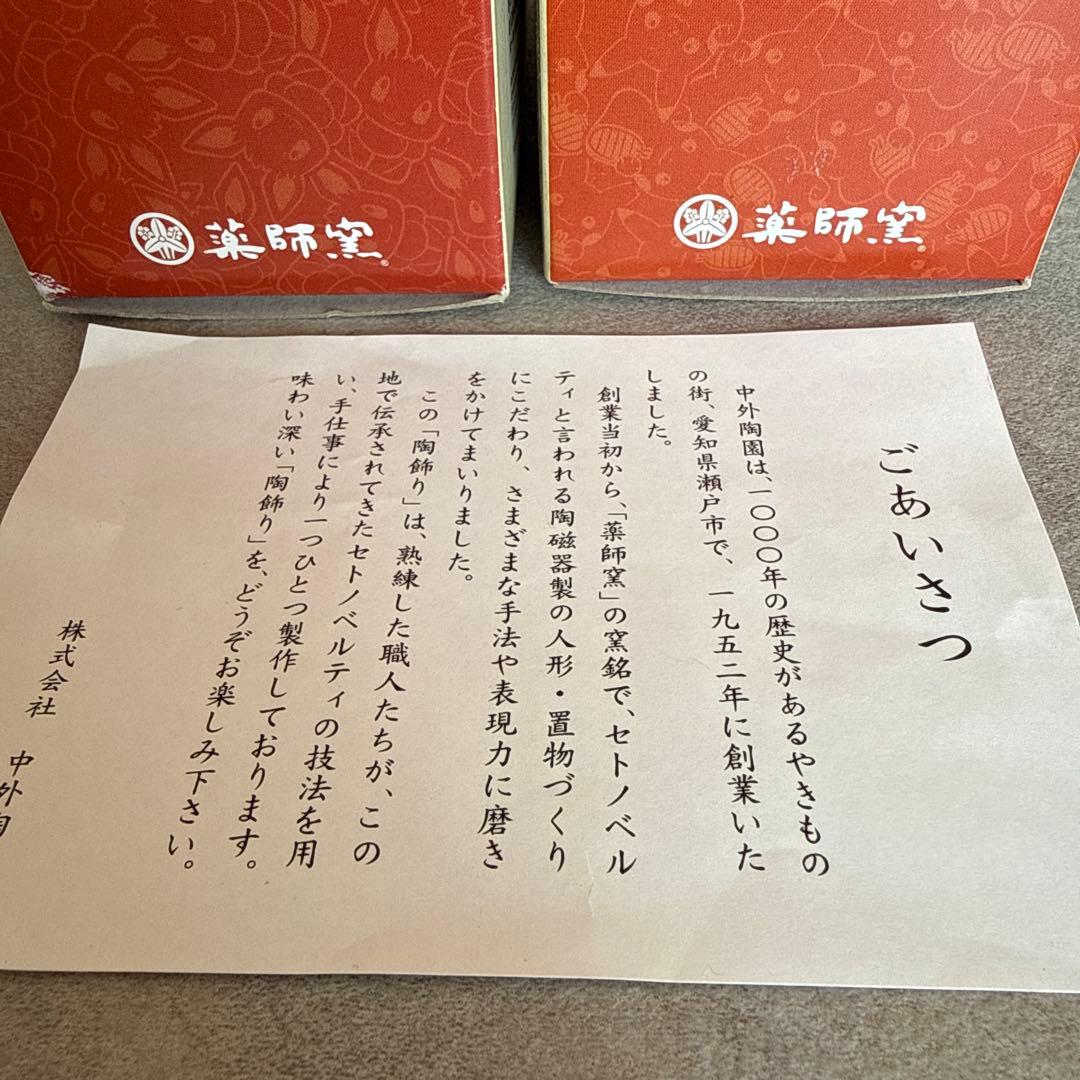 薬師窯
薬師窯
ごあいさつ
中外陶園は、一〇〇〇年の歴史があるやきもの
の街、愛知県瀬戸市で、一九五二年に創業いた
しました。
創業当初から、「薬師窯」の窯銘で、セトノベル
ティと言われる陶磁器製の人形・置物づくり
にこだわり、さまざまな手法や表現力に磨き
をかけてまいりました。
この「陶飾り」は、熟練した職人たちが、この
地で伝承されてきたセトノベルティの技法を用
い、手仕事により一つひとつ製作しております。
味わい深い「陶飾り」を、どうぞお楽しみ下さい。
株式会社 中外陶